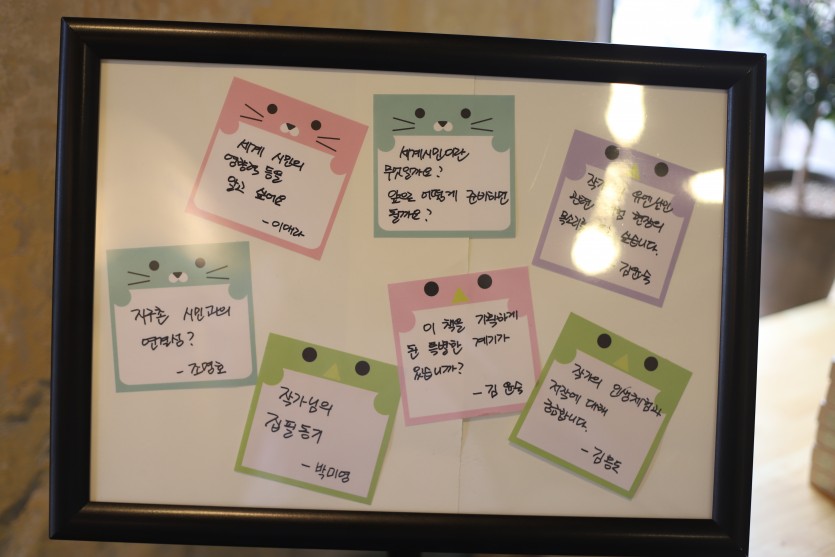 세계 시민의
영향력 등을
알고 싶어요
- 이애라
세계시민이란
무엇일까요?
앞으로 어떻게 준비하면
될까요?
유엔산인
현장의
싶습니다.
김윤숙
지구촌 시민과의
연결성?
- 조영호
이 책을 기획하게
된 특별한 계기가
있습니까?
- 김윤숙
작가님의
집필동기
- 박미영
작가의 인생체험과
저작에 대해
궁금합니다.